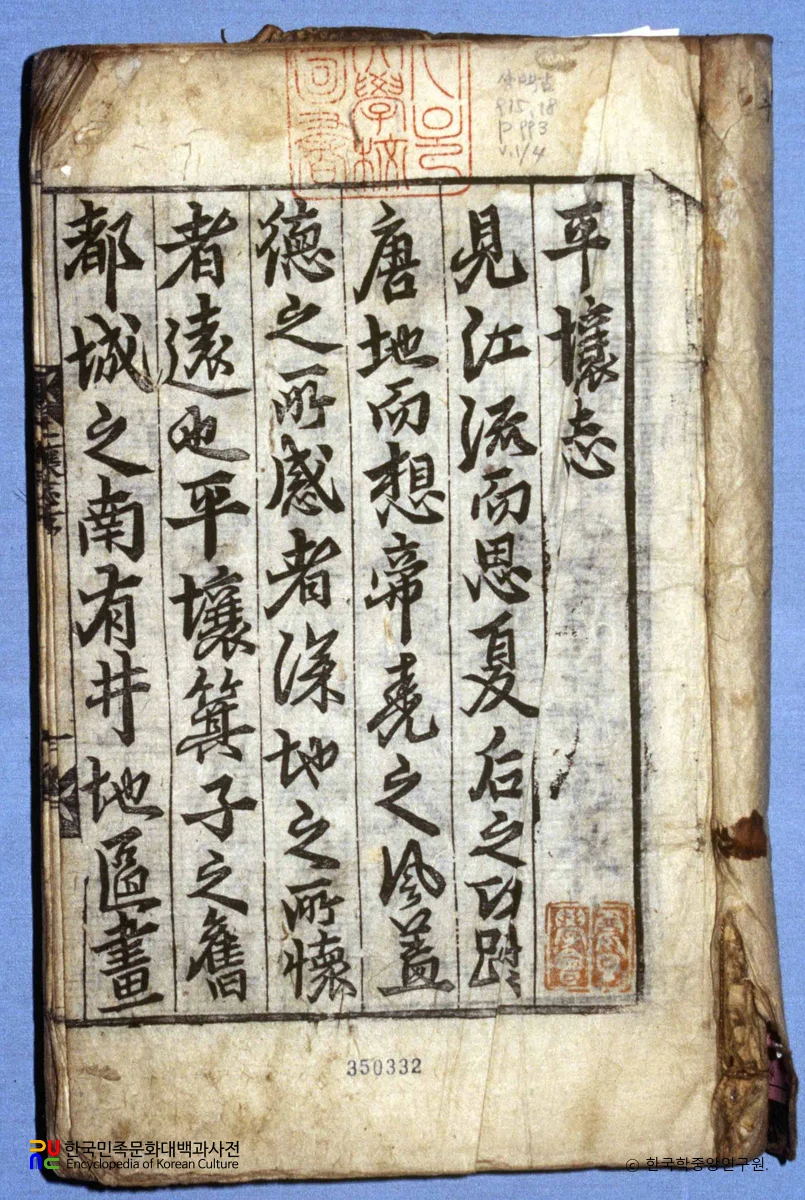 915.18
P993
v.1/4
學校
圖書
平壤志
見江流而思夏后之功
唐地而想帝堯之風蓋
德之所感者深地之所懷
者遠也平壤箕子之舊
都城之南有井地區畫
350332
한국민족문화대백과사전
Encyclopedia of Korean Culture
© 한국학중앙연구원.